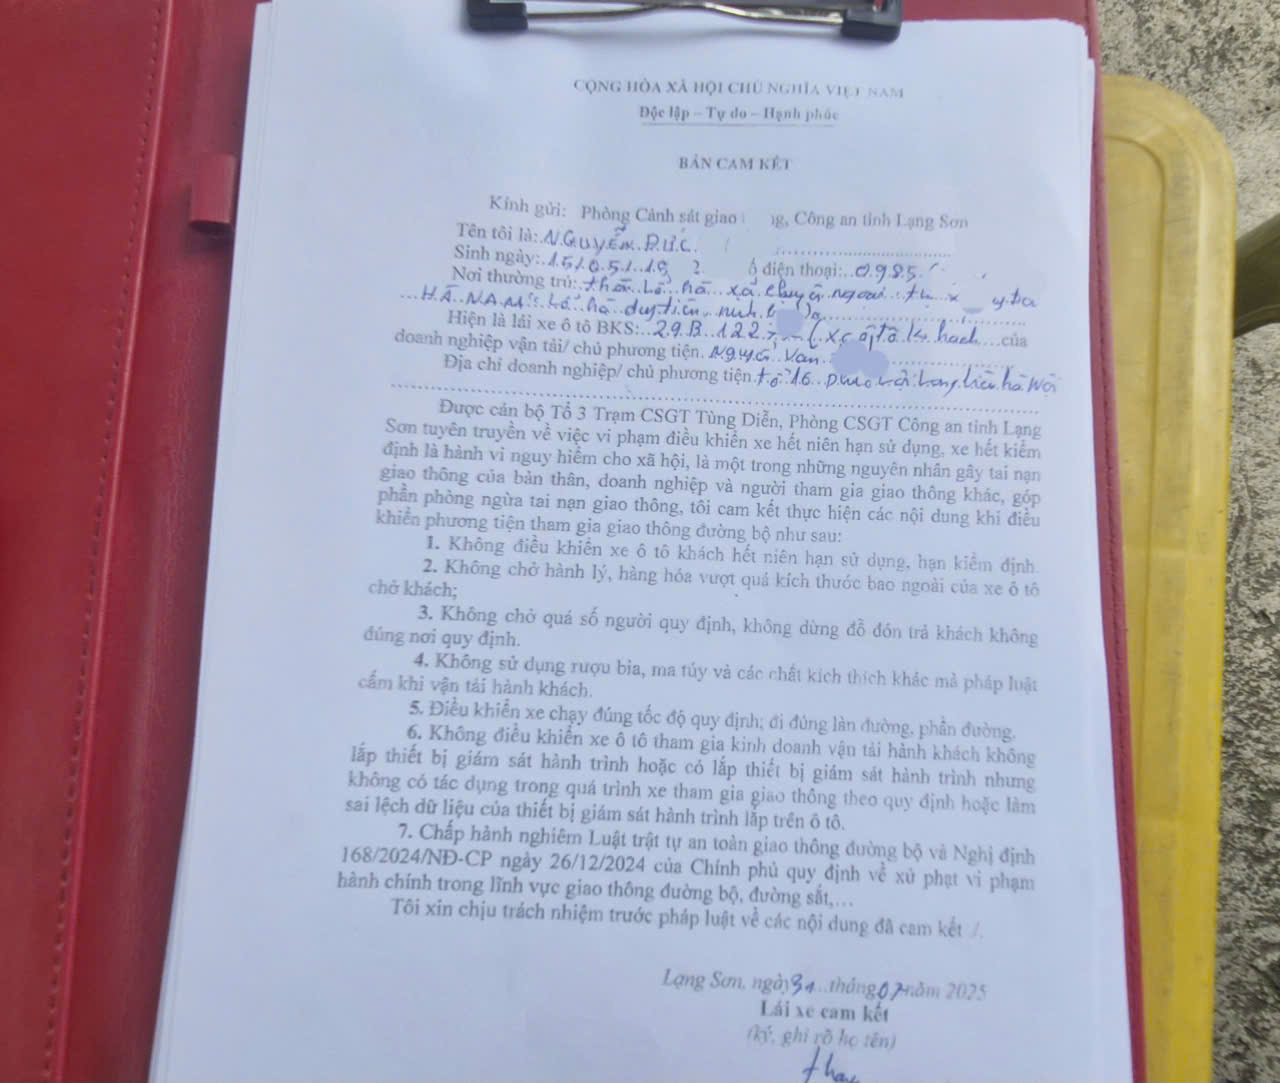 CỘNG HÒA XÃ HỘI CHỦ NGHĨA VIỆT NAM
Độc lập – Tự do – Hạnh phúc
BẢN CAM KẾT
Kính gửi: Phòng Cảnh sát giao ng, Công an tỉnh Lạng Sơn
Tên tôi là: NGUYỄN ĐỨC
Sinh ngày: 15/05/19 2 điện thoại: 0985
Nơi thường trú: thôn xã chuyên ngoại
HÀ NAM duy tiên
Hiện là lái xe ô tô BKS: 29B 122 (xe ô tô k hach của
doanh nghiệp vận tải/ chủ phương tiện. Nguyễn Van
Địa chỉ doanh nghiệp/ chủ phương tiện. tổ 16 hà Nội
Được cán bộ Tổ 3 Trạm CSGT Tùng Diễn, Phòng CSGT Công an tỉnh Lạng
Sơn tuyên truyền về việc vi phạm điều khiển xe hết niên hạn sử dụng, xe hết kiểm
định là hành vi nguy hiểm cho xã hội, là một trong những nguyên nhân gây tai nạn
giao thông của bản thân, doanh nghiệp và người tham gia giao thông khác, góp
phần phòng ngừa tai nạn giao thông, tôi cam kết thực hiện các nội dung khi điều
khiển phương tiện tham gia giao thông đường bộ như sau:
1. Không điều khiển xe ô tô khách hết niên hạn sử dụng, hạn kiểm định.
2. Không chở hành lý, hàng hóa vượt quá kích thước bao ngoài của xe ô tô
chở khách;
3. Không chở quá số người quy định, không dừng đỗ đón trả khách không
đúng nơi quy định.
4. Không sử dụng rượu bia, ma túy và các chất kích thích khác mà pháp luật
cấm khi vận tải hành khách.
5. Điều khiển xe chạy đúng tốc độ quy định; đi đúng làn đường, phần đường.
6. Không điều khiển xe ô tô tham gia kinh doanh vận tải hành khách không
lắp thiết bị giám sát hành trình hoặc có lắp thiết bị giám sát hành trình nhưng
không có tác dụng trong quá trình xe tham gia giao thông theo quy định hoặc làm
sai lệch dữ liệu của thiết bị giám sát hành trình lắp trên ô tô.
7. Chấp hành nghiêm Luật trật tự an toàn giao thông đường bộ và Nghị định
168/2024/NĐ-CP ngày 26/12/2024 của Chính phủ quy định về xử phạt vi phạm
hành chính trong lĩnh vực giao thông đường bộ, đường sắt,...
Tôi xin chịu trách nhiệm trước pháp luật về các nội dung đã cam kết ./.
Lạng Sơn, ngày 31 tháng 07 năm 2025
Lái xe cam kết
(ký, ghi rõ họ tên)